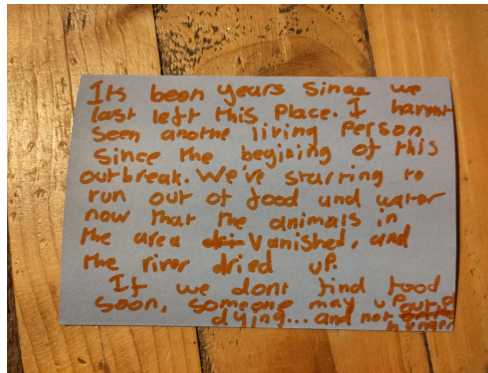 Its been years since we
last left this place. I havent
seen anothe living person
since the begining of this
outbreak. We've starting to
run out of food and water
now that the animals in
the area vanished, and
the river dried up.
If we dont find food
soon, someone may up
dying... and not
hunger